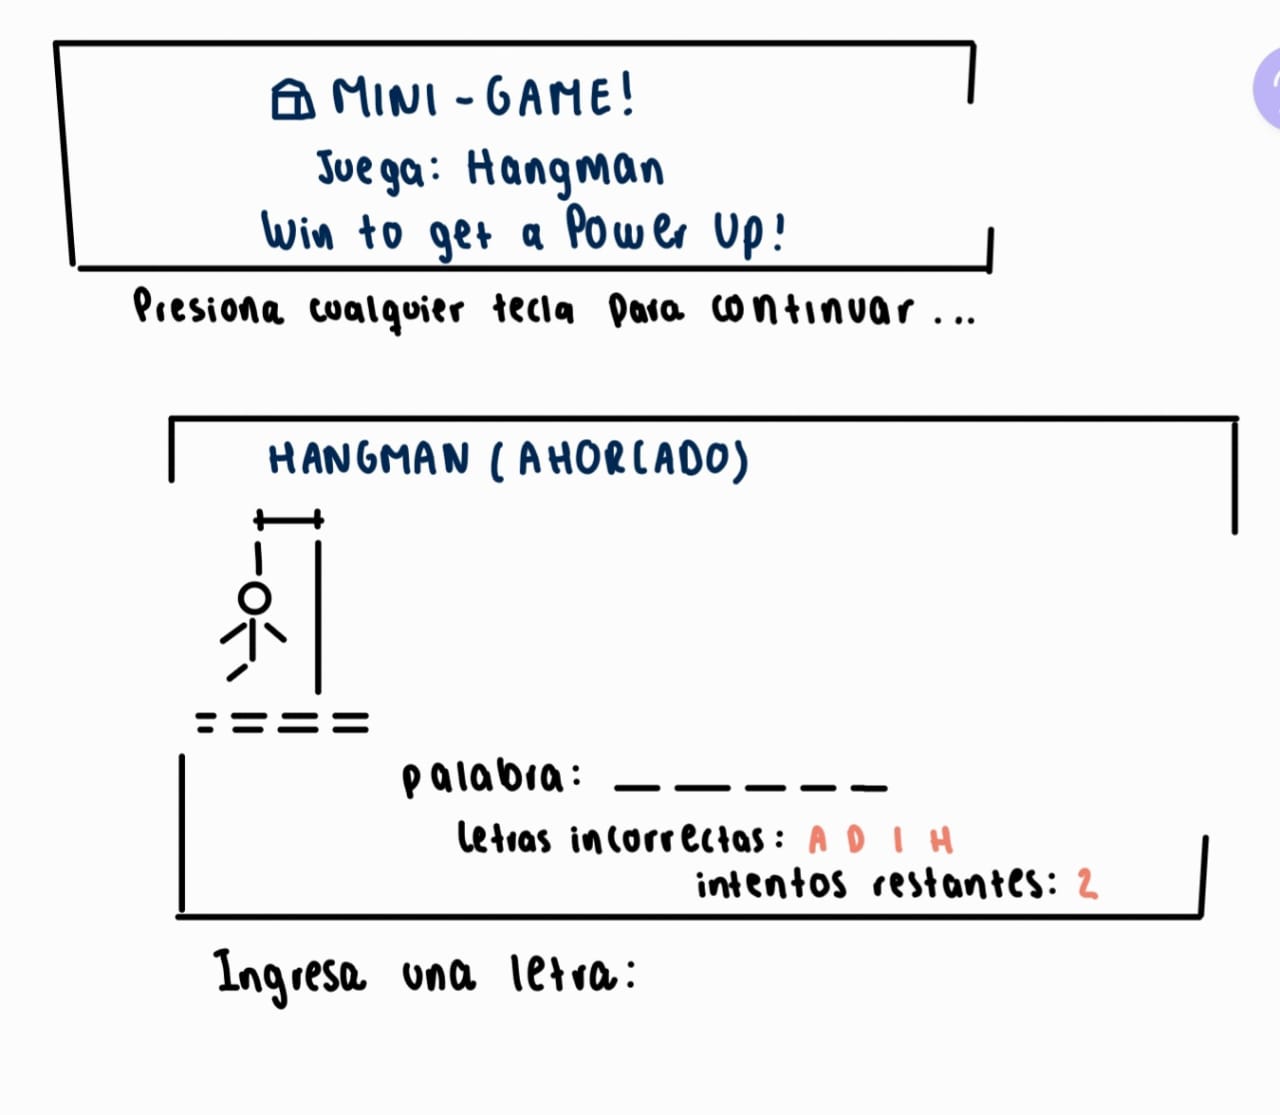 MINI-GAME!
Juega: Hangman
Win to get a Power Up!
Presiona cualquier tecla para continuar...
HANGMAN (AHORCADO)
palabra: _ _ _ _ _
letras incorrectas: A D I H
intentos restantes: 2
Ingresa una letra: